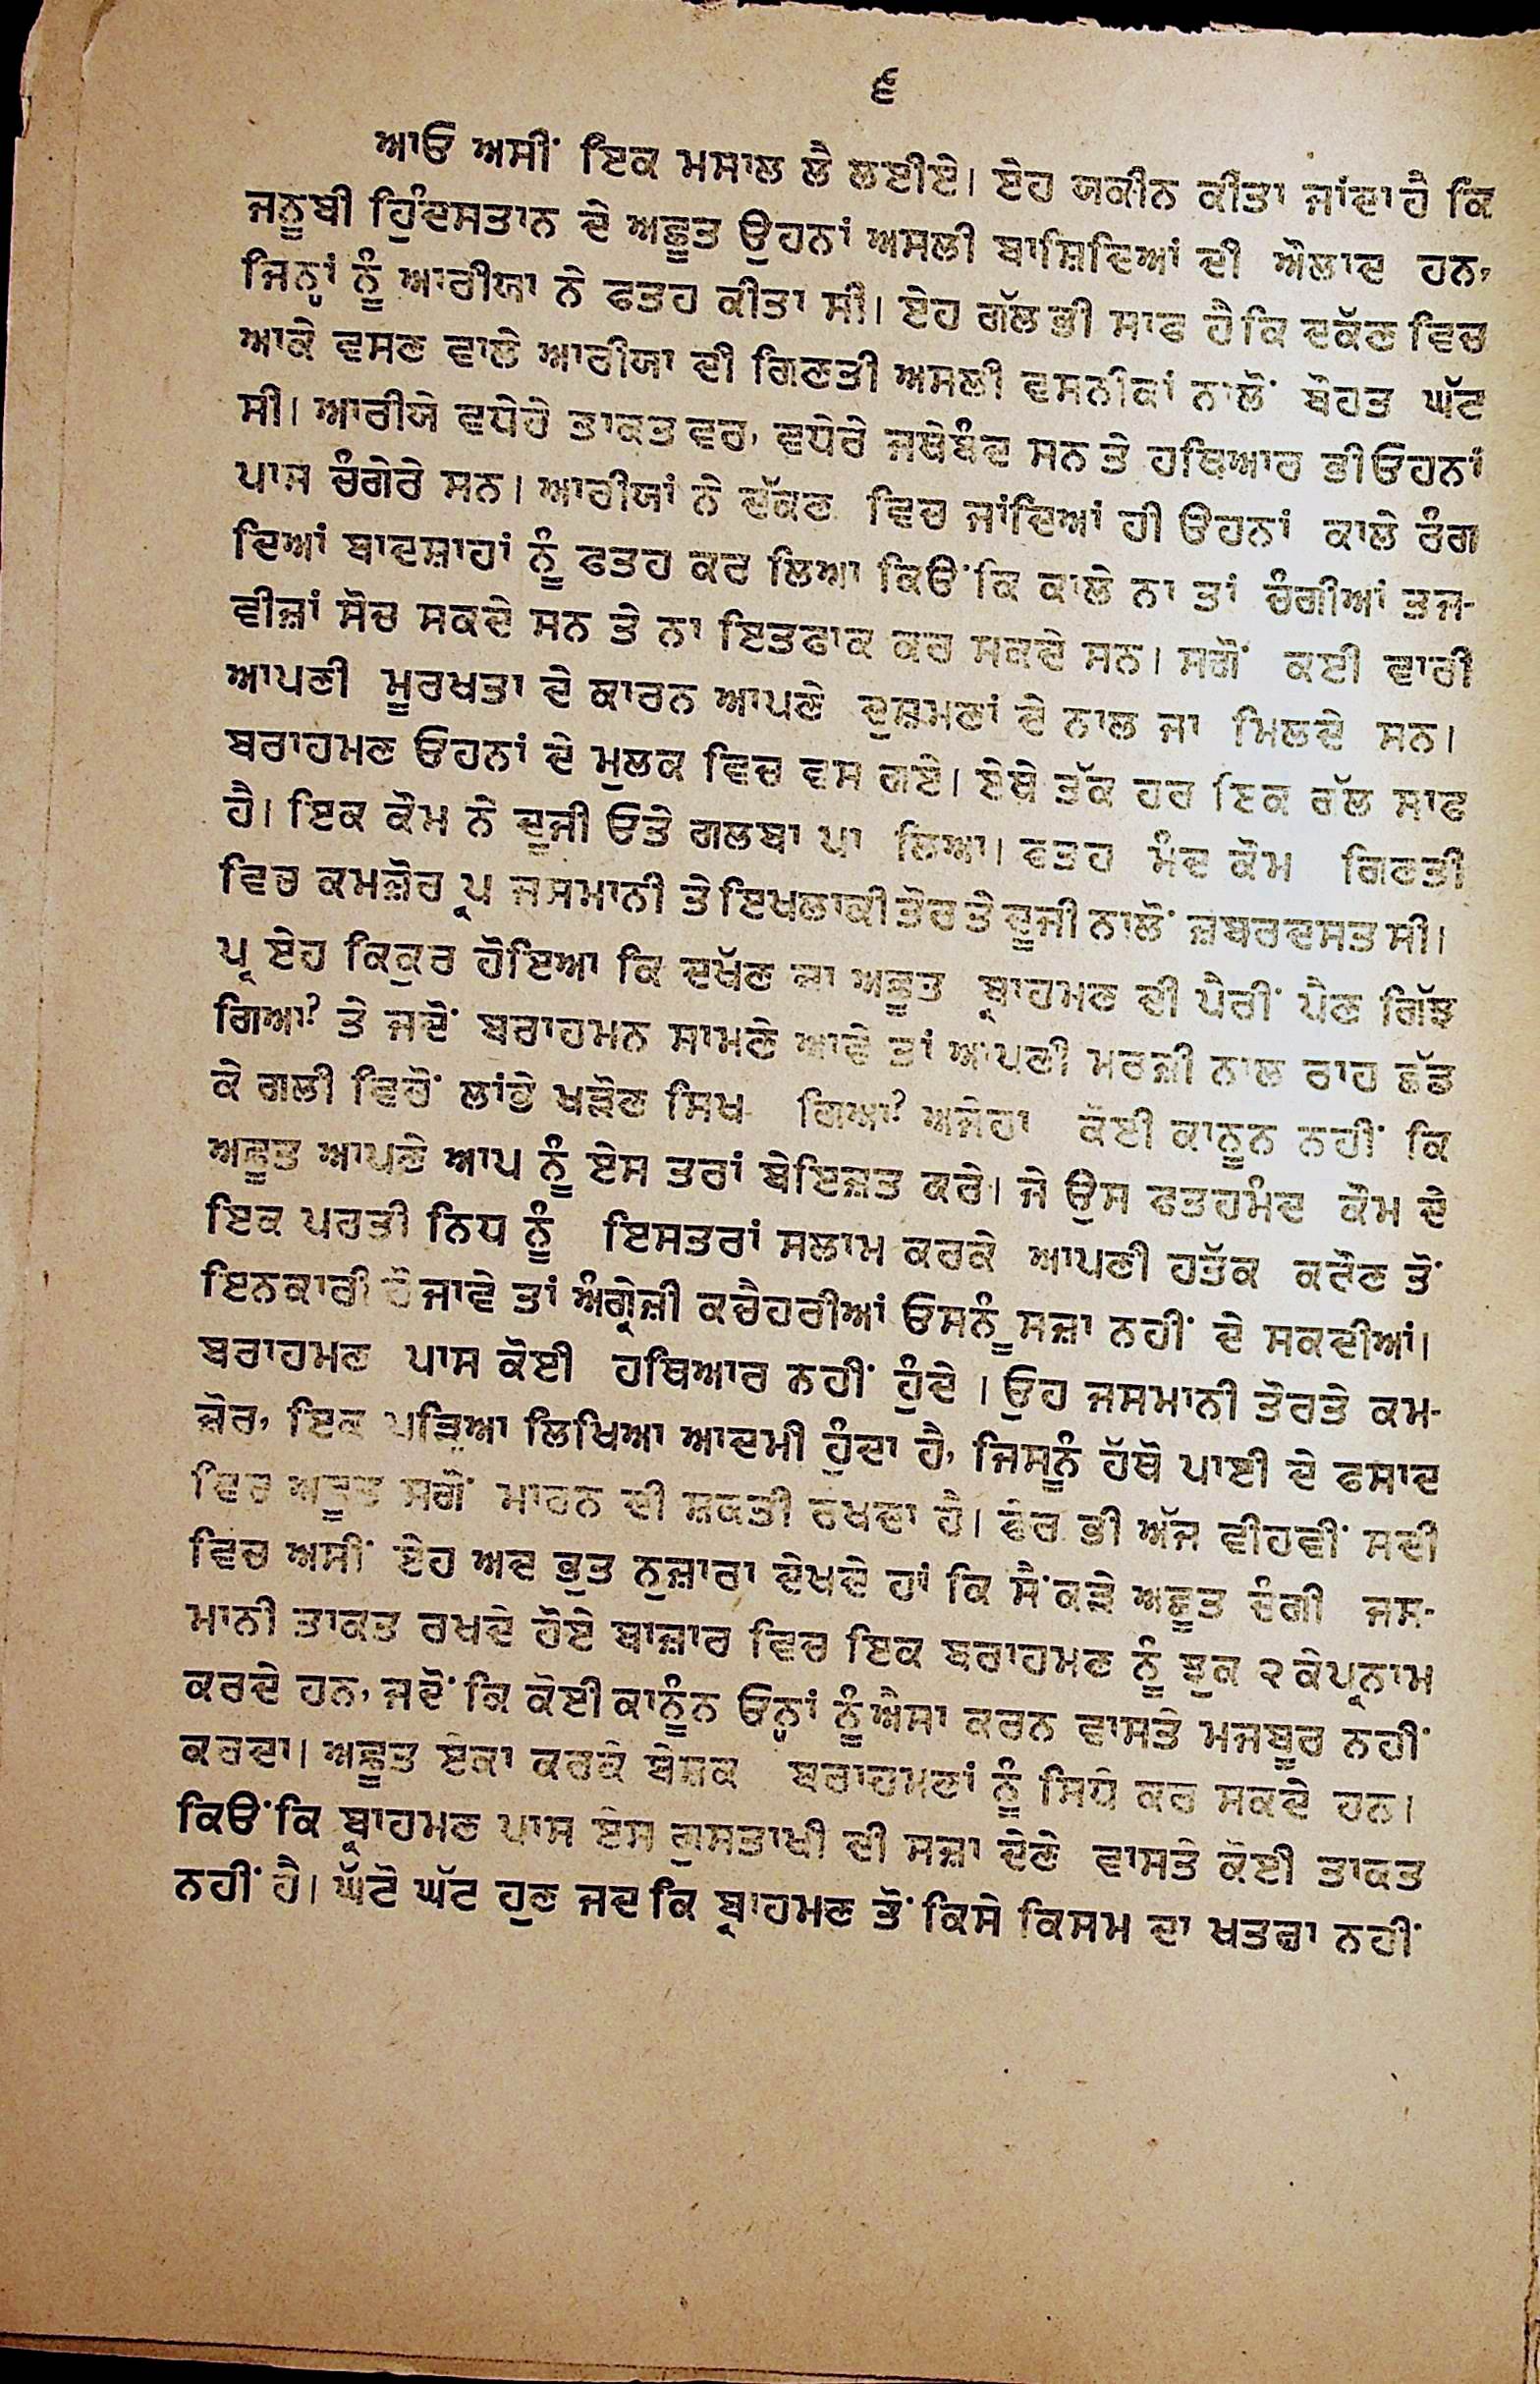 ੬
ਆਓ ਅਸੀਂ ਇਕ ਮਸਾਲ ਲੈ ਲਈਏ। ਏਹ ਯਕੀਨ ਕੀਤਾ ਜਾਂਦਾ ਹੈ ਕਿ
ਜਨੂਬੀ ਹਿੰਦੁਸਤਾਨ ਦੇ ਅਛੂਤ ਉਹਨਾਂ ਅਸਲੀ ਬਾਸ਼ਿਦਿਆਂ ਦੀ ਔਲਾਦ ਹਨ,
ਜਿਨ੍ਹਾਂ ਨੂੰ ਆਰੀਯਾ ਨੇ ਫਤਹ ਕੀਤਾ ਸੀ। ਏਹ ਗੱਲ ਭੀ ਸਾਫ ਹੈ ਕਿ ਦਕੱਣ ਵਿਚ
ਆਕੇ ਵਸਣ ਵਾਲੇ ਆਰੀਯਾ ਦੀ ਗਿਣਤੀ ਅਸਲੀ ਵਸਨੀਕਾਂ ਨਾਲੋਂ ਬੋਹਤ ਘੱਟ
ਸੀ। ਆਰੀਯੇ ਵਧੇਰੇ ਤਾਕਤ ਵਰ, ਵਧੇਰੇ ਜਥੇਬੰਦ ਸਨ ਤੇ ਹਥਿਆਰ ਭੀ ਓਹਨਾਂ
ਪਾਸ ਚੰਗੇਰੇ ਸਨ। ਆਰੀਯਾਂ ਨੇ ਦੱਕਣ ਵਿਚ ਜਾਂਦਿਆਂ ਹੀ ਓਹਨਾਂ ਕਾਲੇ ਰੰਗ
ਦਿਆਂ ਬਾਦਸ਼ਾਹਾਂ ਨੂੰ ਫਤਹ ਕਰ ਲਿਆ ਕਿਓਂਕਿ ਕਾਲੇ ਨਾ ਤਾਂ ਚੰਗੀਆਂ ਤਜ-
ਵੀਜ਼ਾਂ ਸੋਚ ਸਕਦੇ ਸਨ ਤੇ ਨਾ ਇਤਫਾਕ ਕਰ ਸਕਦੇ ਸਨ। ਸਗੋਂ ਕਈ ਵਾਰੀ
ਆਪਣੀ ਮੂਰਖਤਾ ਦੇ ਕਾਰਨ ਆਪਣੇ ਦੁਸ਼ਮਣਾਂ ਦੇ ਨਾਲ ਜਾ ਮਿਲਦੇ ਸਨ।
ਬਰਾਹਮਣ ਓਹਨਾਂ ਦੇ ਮੁਲਕ ਵਿਚ ਵਸ ਗਏ। ਏਥੇ ਤੱਕ ਹਰ ਇਕ ਗੱਲ ਸਾਫ
ਹੈ। ਇਕ ਕੌਮ ਨੇ ਦੂਜੀ ਓਤੇ ਗਲਬਾ ਪਾ ਲਿਆ। ਫਤਹ ਮੰਦ ਕੌਮ ਗਿਣਤੀ
ਵਿਚ ਕਮਜ਼ੋਰ ਪ੍ਰ ਜਸਮਾਨੀ ਤੇ ਇਖਲਾਕੀ ਤੌਰ ਤੇ ਦੂਜੀ ਨਾਲੋਂ ਜ਼ਬਰਦਸਤ ਸੀ।
ਪ੍ਰ ਏਹ ਕਿਕੁਰ ਹੋਇਆ ਕਿ ਦਖੱਣ ਦਾ ਅਛੂਤ ਬ੍ਰਾਹਮਣ ਦੀ ਪੈਰੀਂ ਪੈਣ ਗਿੱਝ
ਗਿਆ? ਤੇ ਜਦੋਂ ਬਰਾਹਮਨ ਸਾਮਣੇ ਆਵੇ ਤਾਂ ਆਪਣੀ ਮਰਜ਼ੀ ਨਾਲ ਰਾਹ ਛੱਡ
ਕੇ ਗਲੀ ਵਿਚੋਂ ਲਾਂਭੇ ਖੜੋਣ ਸਿਖ ਗਿਆ? ਅਜੇਹਾ ਕੋਈ ਕਾਨੂਨ ਨਹੀਂ ਕਿ
ਅਛੂਤ ਆਪਣੇ ਆਪ ਨੂੰ ਏਸ ਤਰਾਂ ਬੇਇਜ਼ਤ ਕਰੇ। ਜੇ ਉਸ ਫਤਹਮੰਦ ਕੌਮ ਦੇ
ਇਕ ਪਰਤੀ ਨਿਧ ਨੂੰ ਇਸਤਰਾਂ ਸਲਾਮ ਕਰਕੇ ਆਪਣੀ ਹਤੱਕ ਕਰੌਣ ਤੋਂ
ਇਨਕਾਰੀ ਹੋ ਜਾਵੇ ਤਾਂ ਅੰਗ੍ਰੇਜ਼ੀ ਕਚੈਹਰੀਆਂ ਓਸਨੂੰ ਸਜ਼ਾ ਨਹੀਂ ਦੇ ਸਕਦੀਆਂ।
ਬਰਾਹਮਣ ਪਾਸ ਕੋਈ ਹਥਿਆਰ ਨਹੀਂ ਹੁੰਦੇ। ਓੁਹ ਜਸਮਾਨੀ ਤੌਰਤੇ ਕਮ-
ਜ਼ੋਰ, ਇਕ ਪੜ੍ਹਿਆ ਲਿਖਿਆ ਆਦਮੀ ਹੁੰਦਾ ਹੈ, ਜਿਸਨੂੰ ਹੱਥੋ ਪਾਈ ਦੇ ਫਸਾਦ
ਵਿਚ ਅਛੂਤ ਸਗੋਂ ਮਾਰਨ ਦੀ ਸ਼ਕਤੀ ਰਖਦਾ ਹੈ। ਫੇਰ ਭੀ ਅੱਜ ਵੀਹਵੀਂ ਸਦੀ
ਵਿਚ ਅਸੀਂ ਏਹ ਅਦ ਭੁਤ ਨੁਜ਼ਾਰਾ ਦੇਖਦੇ ਹਾਂ ਕਿ ਸੈਂਕੜੇ ਅਛੂਤ ਚੰਗੀ ਜਸ-
ਮਾਨੀ ਤਾਕਤ ਰਖਦੇ ਹੋਏ ਬਾਜ਼ਾਰ ਵਿਚ ਇਕ ਬਰਾਹਮਣ ਨੂੰ ਝੁਕ ੨ ਕੇ ਪ੍ਰਨਾਮ
ਕਰਦੇ ਹਨ, ਜਦੋਂ ਕਿ ਕੋਈ ਕਾਨੂੰਨ ਓਨ੍ਹਾਂ ਨੂੰ ਐਸਾ ਕਰਨ ਵਾਸਤੇ ਮਜਬੂਰ ਨਹੀਂ
ਕਰਦਾ। ਅਛੂਤ ਏਕਾ ਕਰਕੇ ਬੇਸ਼ਕ ਬਰਾਹਮਣਾਂ ਨੂੰ ਸਿਧੇ ਕਰ ਸਕਦੇ ਹਨ।
ਕਿਓਂਕਿ ਬ੍ਰਾਹਮਣ ਪਾਸ ਏਸ ਗੁਸਤਾਖੀ ਦੀ ਸਜ਼ਾ ਦੇਣੇ ਵਾਸਤੇ ਕੋਈ ਤਾਕਤ
ਨਹੀਂ ਹੈ। ਘੱਟੋ ਘੱਟ ਹੁਣ ਜਦ ਕਿ ਬ੍ਰਾਹਮਣ ਤੋਂ ਕਿਸੇ ਕਿਸਮ ਦਾ ਖਤਰਾ ਨਹੀਂ